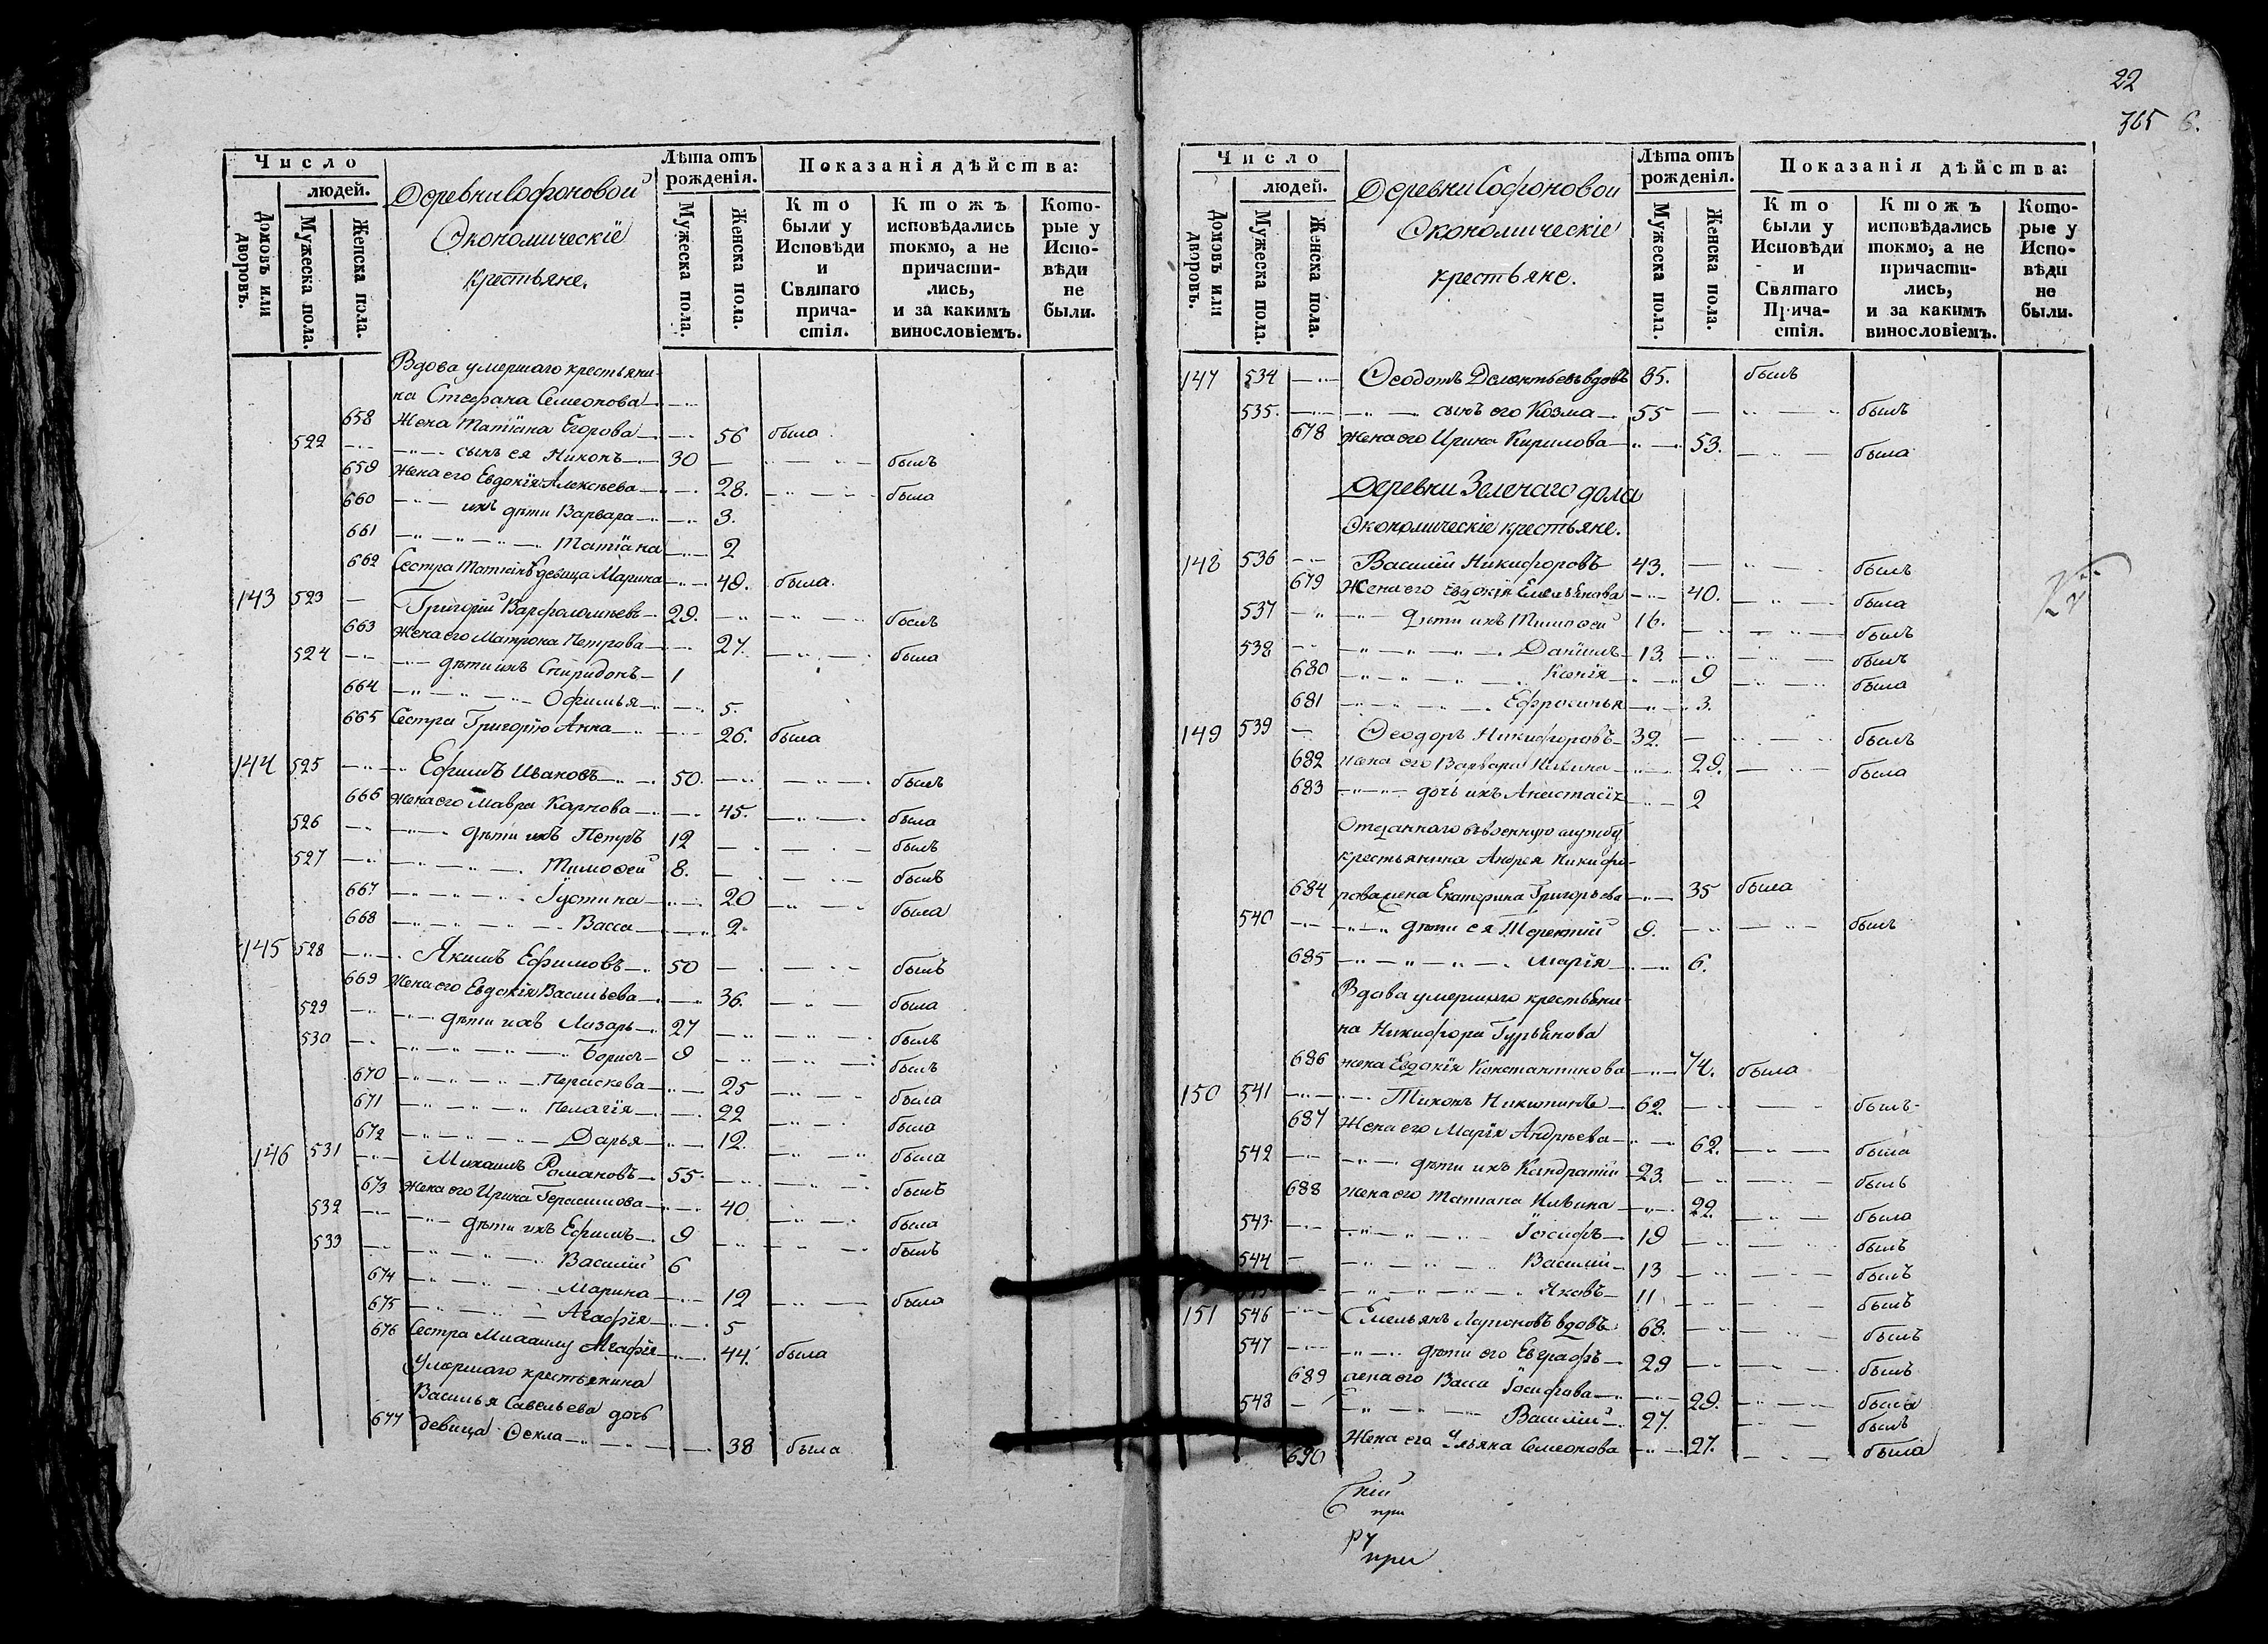 22
365 6.
Число
людей.
Домовъ или дворовъ.
Мужеска пола.
Женска пола.
Деревни Софоновой
Экономическіе
крестьяне.
Лѣта отъ рожденія.
Мужеска пола.
Женска пола.
Показанія дѣйства:
Кто были у Исповѣди и Святаго прича-стія.
Ктожъ исповѣдались токмо, а не причасти-лись, и за какимъ винословіемъ.
Кото-рые у Испо-вѣди не были.
Вдова умершаго крестьяни-
на Стефана Семеонова
658 Жена Татіана Егорова 56 была
522 сынъ ея Никонъ 30 былъ
659 Жена его Евдокія Алексѣева 28. была
660 ихъ дѣти Варвара 3.
661 Татіана 2
662 Сестра девица Марина 48. была.
143 523 Григорій Варфоломѣевъ 29. былъ
663 Жена его Матрона Петрова 27. была
524 дѣти ихъ Спиридонъ 1
664 Офимья 5.
665 Сестра Григорію Анна 26. была
144 525 Ефимъ Ивановъ 50. былъ
666 Жена его Мавра Карпова 45. была
526 дѣти ихъ Петръ 12 былъ
527 Тимоѳей 8. былъ
667 Іустина 20 была
668 Васса 2.
145 528 Якимъ Ефимовъ 50 былъ
669 Жена его Евдокія Васильева 36. была
529 дѣти ихъ Лазарь 27 былъ
530 Борисъ 9 былъ
670 Параскева 25 была
671 Пелагія 22 была
672 Дарья 12. была
146 531 Михаилъ Романовъ 55. былъ
673 Жена его Ирина Герасимова 40 была
532 дѣти ихъ Ефимъ 9 былъ
533 Василій 6
674 Марина 12 была
675 Агафія 5
676 Сестра Михаилу Агафія 44. была
Умершаго крестьянина
Василья Савельева дочь
677 девица Ѳекла 38 была
Число
людей.
Домовъ или дворовъ.
Мужеска пола.
Женска пола.
Деревни Софоновой
Экономическіе
крестьяне.
Лѣта отъ рожденія.
Мужеска пола.
Женска пола.
Показанія дѣйства:
Кто были у Исповѣди и Святаго Прича-стія.
Ктожъ исповѣдались токмо, а не причасти-лись, и за какимъ винословіемъ.
Кото-рые у Испо-вѣди не были.
147 534 Ѳеодотъ вдовъ 85. былъ
535. сынъ его Козма 55 былъ
678 Жена его Ирина Кирилова 53. была
Деревни Зеленаго дола
Экономическіе крестьяне.
148 536 Василій Никифоровъ 43. былъ
679 Жена его Евдокія Емельянова 40. была
537 дѣти ихъ Тимоѳей 16. былъ
538 Даніилъ 13. былъ
680 Ксенія 9 была
681 Ефросинья 3.
149 539 Ѳеодоръ Никифоровъ 32. былъ
682 Жена его Варвара 29. была
683 дочь ихъ Анастасія 2
Отданнаго въ военную службу
крестьянина Андрея Никифо-
684 рова жена Екатерина Григорьева 35 была
540 дѣти ея Терентій 9. былъ
685 Марія 6.
Вдова умершаго крестьяни-
на Никифора Гурьянова
686 жена Евдокія Константинова 74. была
150 541 Тихонъ Никитинъ 62. былъ
687 Жена его Марія Андрѣева 62. была
542 дѣти ихъ Кандратій 23. былъ
688 Жена его Татиана Ильина 22. была
543. Іосифъ 19 былъ
544 Василій 13 былъ
Яковъ 11 былъ
151 546 Емельянъ вдовъ 68. былъ
547 дѣти его Евграфъ 29 былъ
689 жена его Васса Іосифова 29. была
548 Василій 27. былъ
690 Жена его Ульяна Семеонова 27. была
при
ру
при